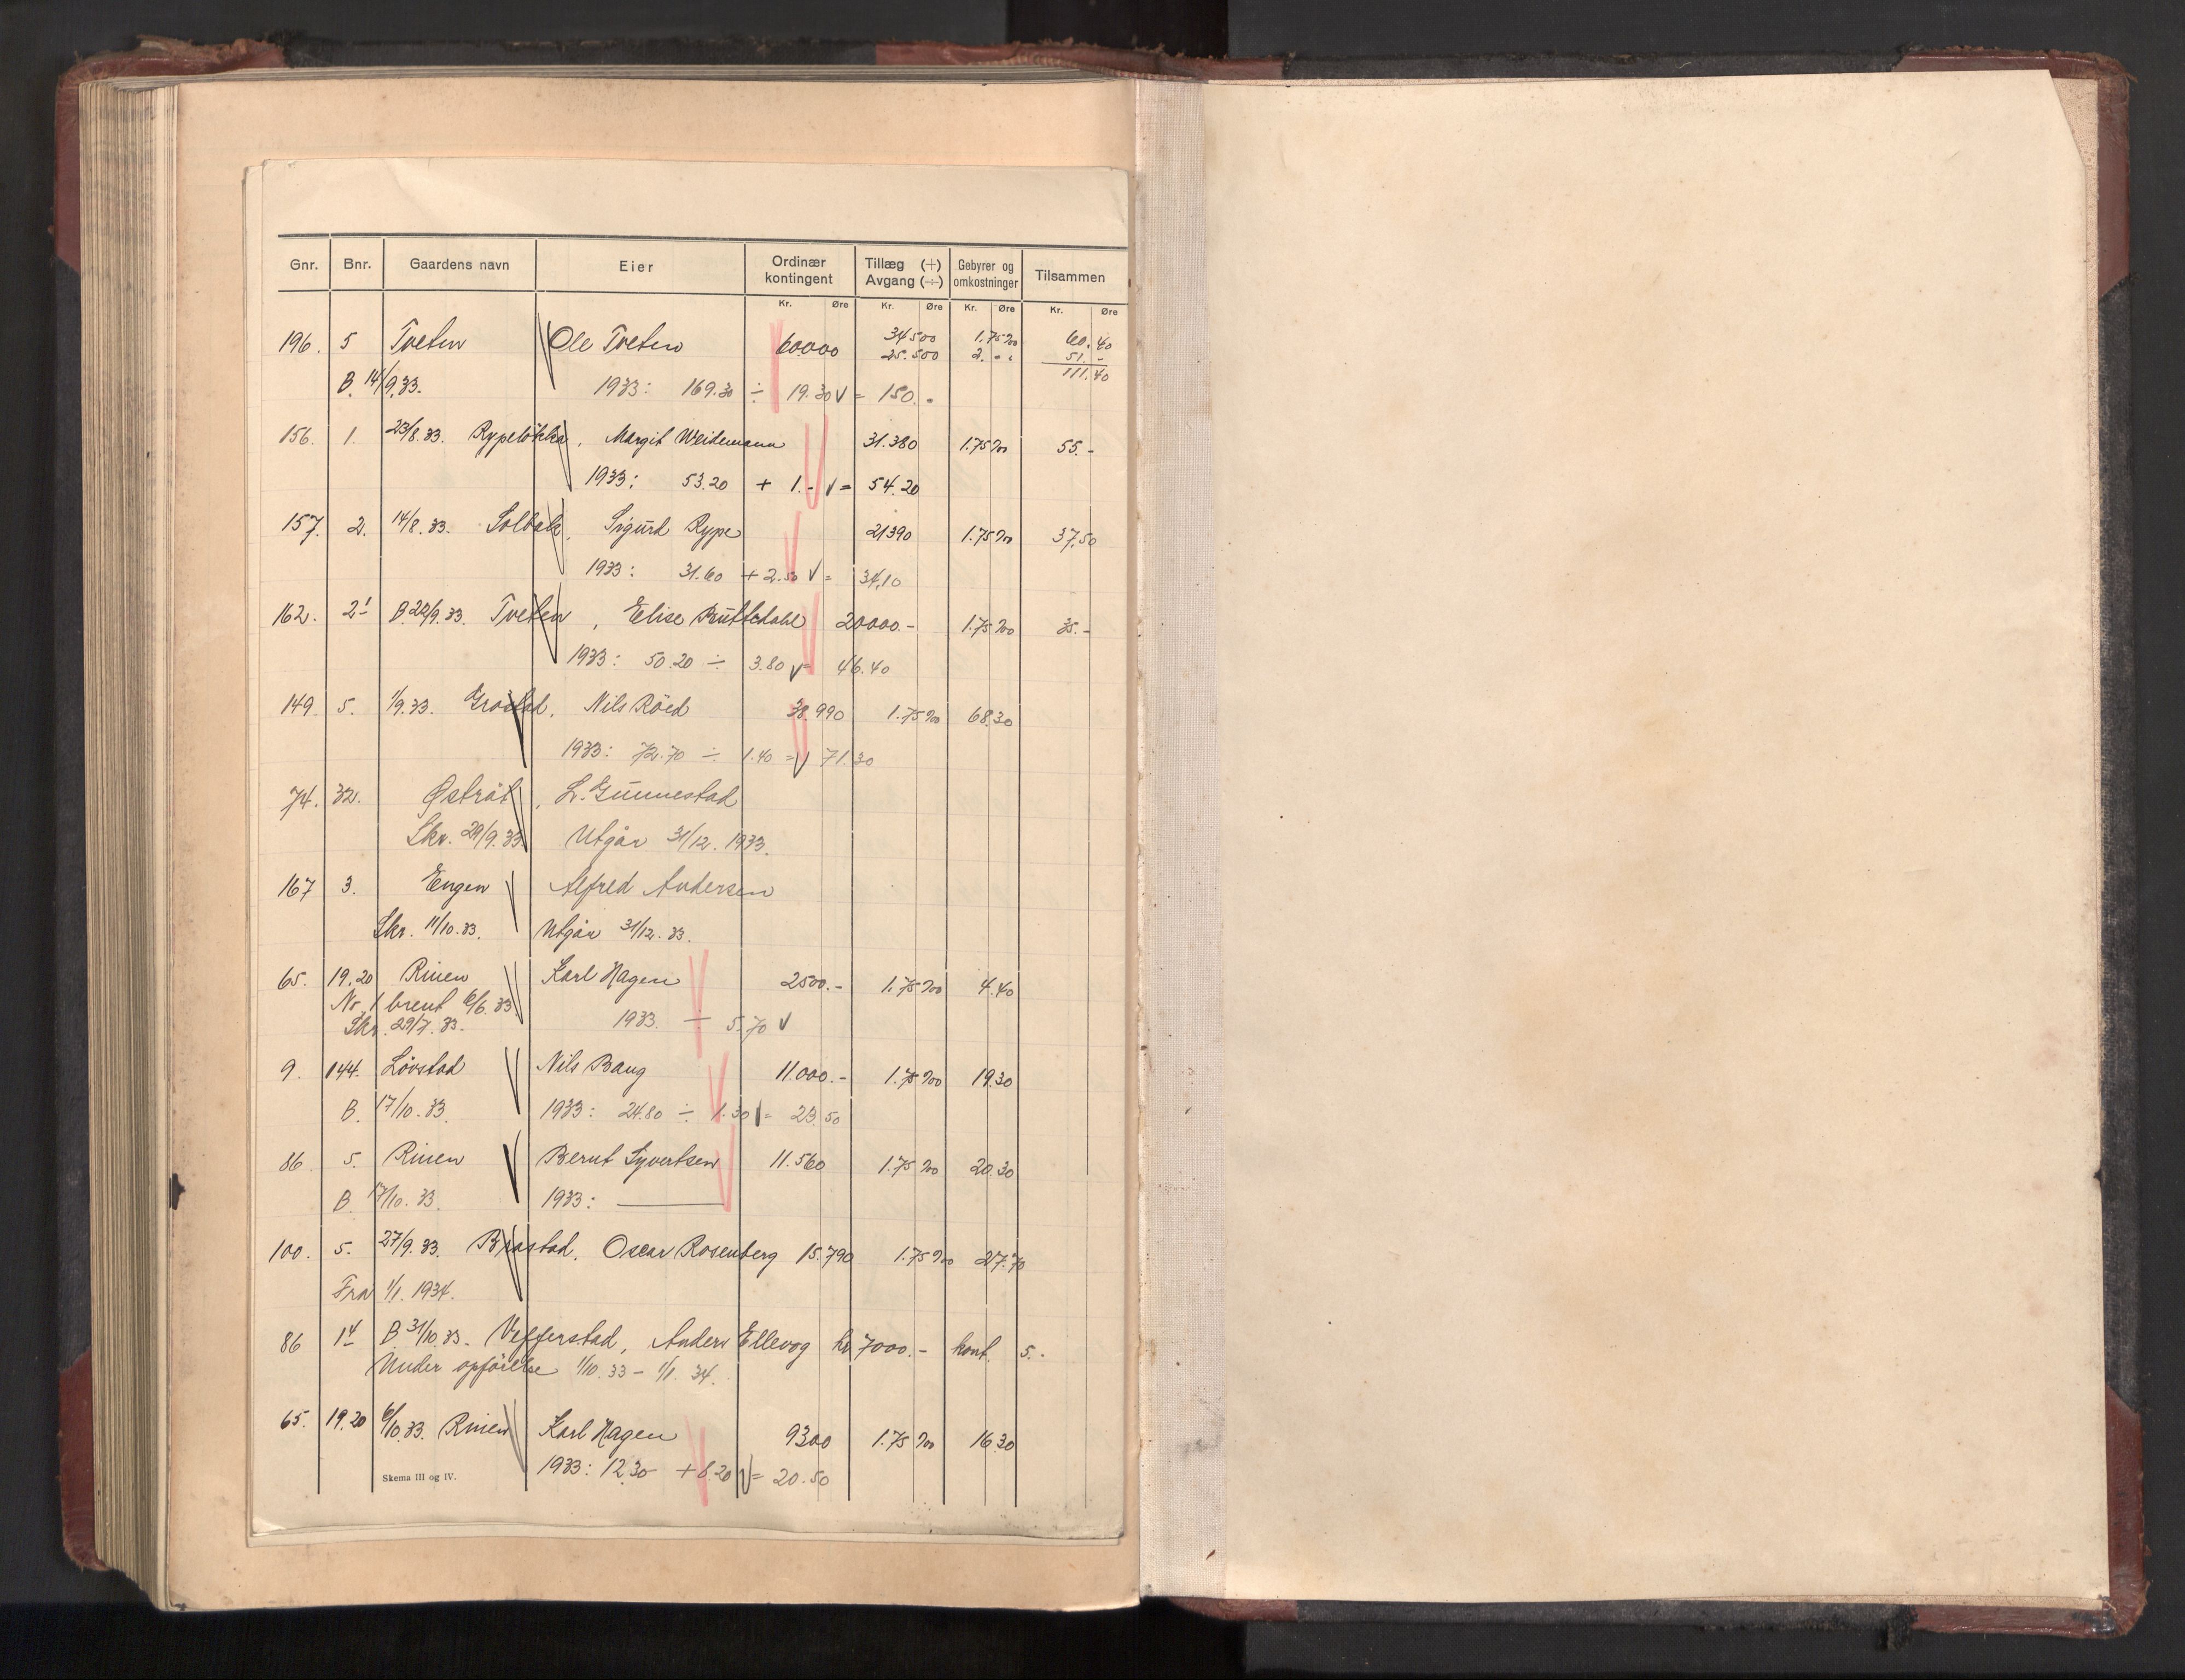 Gnr. Bnr. Gaardens navn Eier Ordinær kontingent Tillæg (+) Avgang (÷) Gebyrer og omkostninger Tilsammen
Kr. Øre Kr. Øre Kr. Øre Kr. Øre
196. 5 Tveten Ole Tveten 60000 34500 1.75 ‰ 60.40
25.500 2. " " 51.-
111.40
B. 14/9.33. 1933: 169.30 ÷ 19.30 √ = 150.-
156. 1. 23/8.33. Rypeløkka, Margit Weidemann 31.380 1.75 ‰ 55.-
1933: 53.20 + 1.- √ = 54.20
157. 2. 14/8.33. Solbak, Sigurd Rype 21390 1.75 ‰ 37.50
1933: 31.60 + 2.50 √ = 34.10
162. 2¹ B. 22/9.33. Tveten, Elise Bruttedahl 20000.- 1.75 ‰ 35.-
1933: 50.20 ÷ 3.80 √ = 46.40
149. 5. 1/9.33. Grostad, Nils Röed 38.990 1.75 ‰ 68.30
1933: 72.70 ÷ 1.40 = √ 71.30
74. 32. Østråt, L. Gunnestad
Skr. 29/9.33. Utgår 31/12. 1933.
167 3. Engen Alfred Andersen
Skr. 11/10.33. Utgår 31/12.33.
65. 19.20 Rinen Karl Hagen 2500.- 1.75 ‰ 4.40
No. 1 brent 6/6.33
Skr. 29/7.33. 1933. ÷ 5.70 √
9. 144. Lövstad Nils Baug 11.000.- 1.75 ‰ 19.30
B. 17/10.33. 1933: 24.80 ÷ 1.30 √ = 23.50
86. 5. Rinen Bernt Syvertsen 11.560 1.75 ‰ 20.30
B. 17/10.33. 1933: ———
100. 5. 27/9.33. Oscar Rosenberg 15.790 1.75 ‰ 27.70
Fra 1/1. 1934.
86 1⁴ B 31/10.33. Anders Ellevog kr 7000.- kont. 5.-
Under opförelse 1/10.33 – 1/1.34.
65. 19.20 6/10.33. Rinen Karl Hagen 9300 1.75 ‰ 16.30
1933: 12.30 + 8.20 √ = 20.50
Skema III og IV.